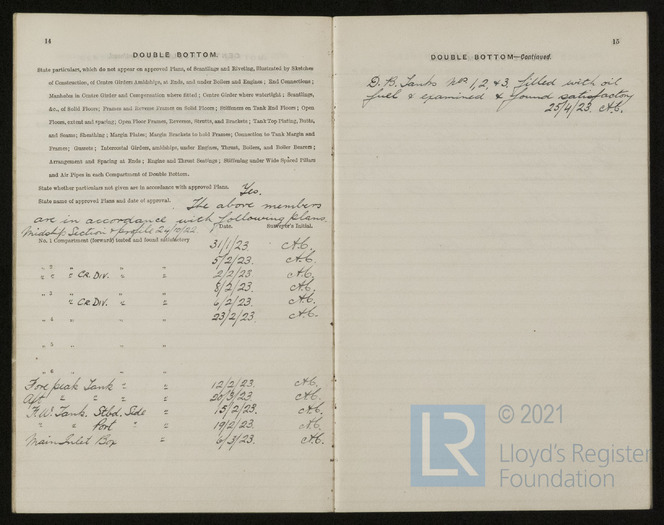 14
DOUBLE BOTTOM.
State particulars, which do not appear on approved Plans, of Scantlings and Riveting, illustrated by Sketches
of Construction, of Centre Girders Amidships, at Ends, and under Boilers and Engines; End Connections;
Manholes in Centre Girder and Compensation where fitted; Centre Girder where watertight; Scantlings,
&c., of Solid Floors; Frames and Reverse Frames on Solid Floors; Stiffeners on Tank End Floors; Open
Floors, extent and spacing; Open Floor Frames, Reverses, Struts, and Brackets; Tank Top Plating, Butts,
and Seams; Sheathing; Margin Plates; Margin Brackets to hold Frames; Connection to Tank Margin and
Frames; Gussets; Intercostal Girders, amidships, under Engines, Thrust, Boilers, and Boiler Bearers;
Arrangement and Spacing at Ends; Engine and Thrust Seatings; Stiffening under Wide Spaced Pillars
and Air Pipes in each Compartment of Double Bottom.
State whether particulars not given are in accordance with approved Plans. Yes.
State name of approved Plans and date of approval. The above members
are in accordance with following plans
Midship Section & profile 24/9/22. Date. Surveyor's Initial.
No. 1 Compartment (forward) tested and found satisfactory 31/1/23. A.C.
„ 2 „ „ „ 5/2/23. A.C.
„ 2 „ CR. DIV. „ „ 2/2/23. A.C.
„ 3 „ „ „ 8/2/23. A.C.
„ CR DIV. „ „ 6/2/23. A.C.
„ 4 „ „ „ 23/2/23. A.C.
„ 5 „ „ „
„ 6 „ „ „
Fore peak Tank „ „ 12/2/23. A.C.
Aft „ „ „ „ 20/3/23 A.C.
F.W. Tank. Stbd. Side „ 15/2/23. A.C.
„ „ Port „ „ 19/2/23. A.C.
Main Inlet Box „ 6/3/23. A.C.
15
DOUBLE BOTTOM—Continued.
D. B. Tanks Nos 1, 2, & 3. filled with oil
fuel & examined & found satisfactory
25/4/23. A.C.
LR
© 2021
Lloyd's Register
Foundation